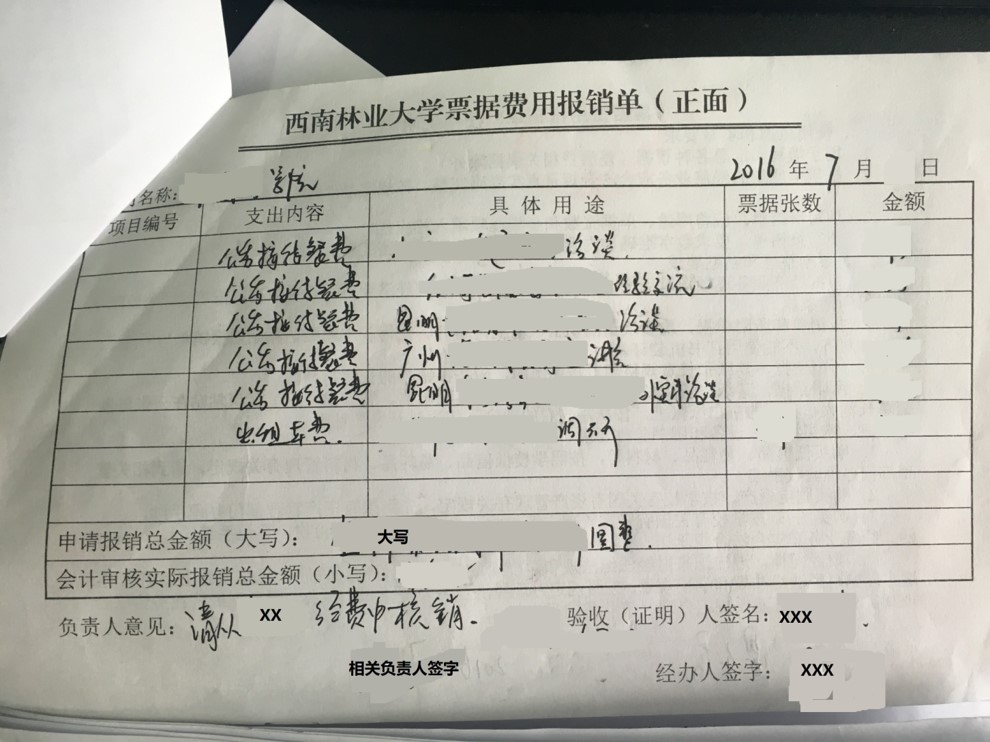 西南林业大学票据费用报销单（正面）
名称： 学院 2016 年 7 月 日
项目编号 支出内容 具体用途 票据张数 金额
公务接待餐费 洽谈
公务接待餐费 经验交流
公务接待餐费 昆明 洽谈
公务接待餐费 广州
公务接待餐费 昆明 洽谈
出租车费
申请报销总金额（大写）： 大写 圆整
会计审核实际报销总金额（小写）：
负责人意见：请从 XX 经费中核销. 验收（证明）人签名：XXX
相关负责人签字 经办人签字： XXX